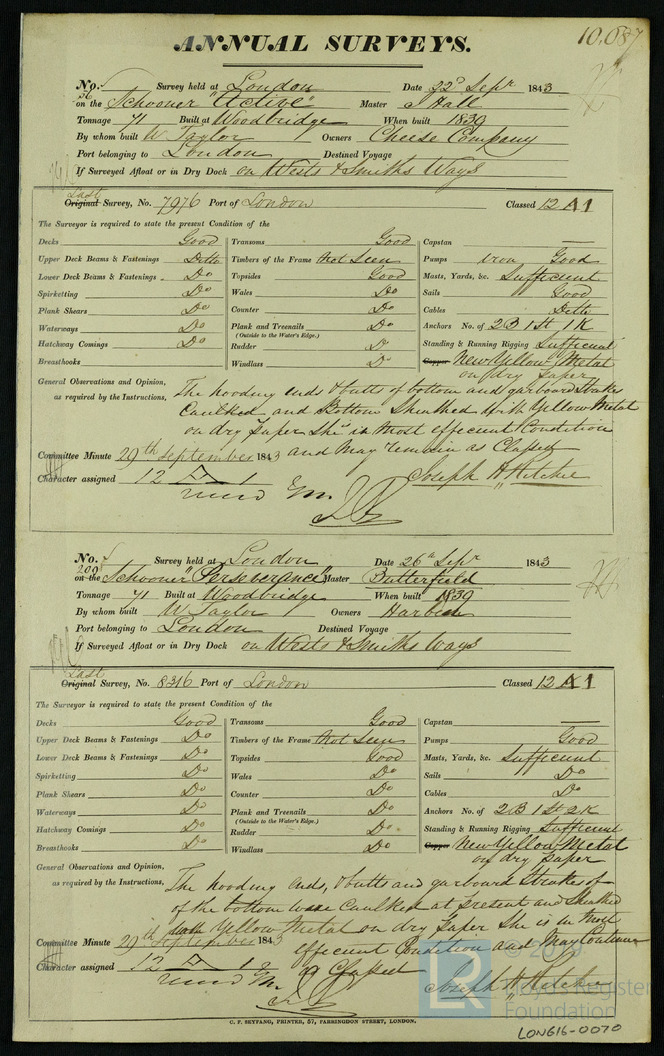 10,087
ANNUAL SURVEYS.
No. 56 Survey held at London Date 22d Sepr 1843
on the Schooner "Active" Master J Hall
Tonnage 71 Built at Woodbridge When built 1839
By whom built W. Taylor Owners Cheese Company
Port belonging to London Destined Voyage
If Surveyed Afloat or in Dry Dock on Wests & Smiths Ways
Last
Original Survey, No. 7976 Port of London Classed 12 A1
The Surveyor is required to state the present Condition of the
Decks Good Transoms Good Capstan —
Upper Deck Beams & Fastenings Ditto Timbers of the Frame Not Seen Pumps iron Good
Lower Deck Beams & Fastenings Do Topsides Good Masts, Yards, &c. Sufficient
Spirketting Do Wales Do Sails Good
Plank Shears Do Counter Do Cables Ditto
Waterways Do Plank and Treenails Do Anchors No. of 2B 1St 1K
(Outside to the Water's Edge.)
Hatchway Comings Do Rudder Do Standing & Running Rigging Sufficient
Breasthooks Windlass Do Copper New Yellow Metal
on dry paper
General Observations and Opinion, The hooding ends & butts of bottom and garboard Strakes
as required by the Instructions, Caulked and Bottom Sheathed with Yellow Metal
on dry paper She is in most effecient Condition
Committee Minute 29th September 1843 and May remain as Classed
Character assigned 12 A 1 Joseph H Ritchie
No. 209 Survey held at London Date 26th Sepr 1843
on the Schooner "Perseverance" Master Butterfield
Tonnage 71 Built at Woodbridge When built 1839
By whom built W Taylor Owners
Port belonging to London Destined Voyage
If Surveyed Afloat or in Dry Dock on Wests & Smiths Ways
Last
Original Survey, No. 8316 Port of London Classed 12 A1
The Surveyor is required to state the present Condition of the
Decks Good Transoms Good Capstan —
Upper Deck Beams & Fastenings Do Timbers of the Frame Not Seen Pumps Good
Lower Deck Beams & Fastenings Do Topsides Good Masts, Yards, &c. Sufficient
Spirketting Do Wales Do Sails Do
Plank Shears Do Counter Do Cables Do
Waterways Do Plank and Treenails Do Anchors No. of 2B 1St 2K
(Outside to the Water's Edge.)
Hatchway Comings Do Rudder Do Standing & Running Rigging Sufficient
Breasthooks Do Windlass Do Copper New Yellow Metal
on dry paper
General Observations and Opinion, The hooding ends, & butts and garboard Strakes of
as required by the Instructions, of the bottom were Caulked at present and Sheathed
with Yellow Metal on dry paper She is in Most
Committee Minute 29th September 1843 effecient Condition and May Continue
Character assigned 12 A 1 as Classed Joseph H Ritchie
© 2019
LR Lloyd's Register
Foundation
C. F. SEYFANG, PRINTER, 57, FARRINGDON STREET, LONDON.
LON616-0070